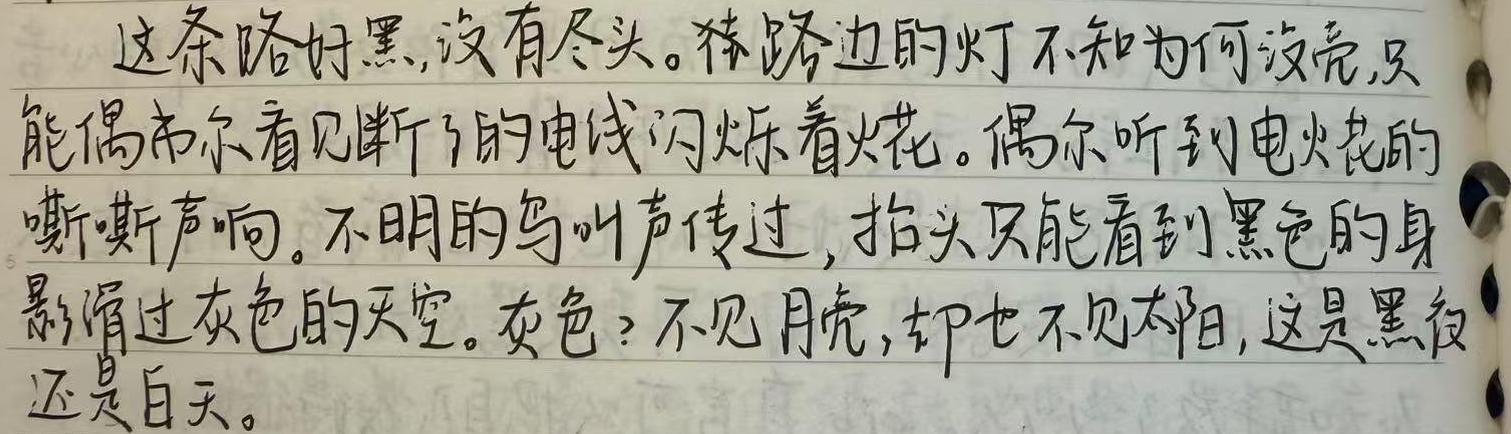 这条路好黑,没有尽头。路边的灯不知为何没亮,只
能偶尔看见断了的电线闪烁着火花。偶尔听到电火花的
嘶嘶声响。不明的鸟叫声传过,抬头只能看到黑色的身
影滑过灰色的天空。灰色?不见月亮,却也不见太阳,这是黑夜
还是白天。